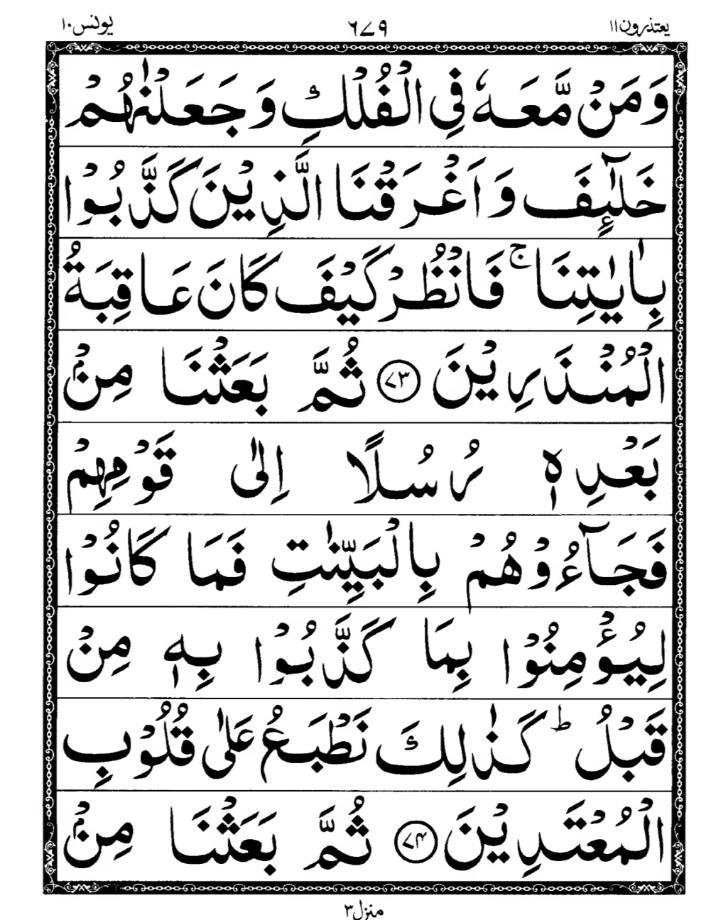 یعتذرون۱۱ ۶۷۹ یونس۱۰
وَمَنْ مَّعَهٗ فِی الْفُلْكِ وَجَعَلْنٰهُمْ
خَلٰٓئِفَ وَاَغْرَقْنَا الَّذِیْنَ كَذَّبُوْا
بِاٰیٰتِنَا ۚ فَانْظُرْ كَیْفَ كَانَ عَاقِبَةُ
الْمُنْذَرِیْنَ ﴿۷۳﴾ ثُمَّ بَعَثْنَا مِنْۢ
بَعْدِهٖ رُسُلًا اِلٰی قَوْمِهِمْ
فَجَآءُوْهُمْ بِالْبَیِّنٰتِ فَمَا كَانُوْا
لِیُؤْمِنُوْا بِمَا كَذَّبُوْا بِهٖ مِنْ
قَبْلُ ؕ كَذٰلِكَ نَطْبَعُ عَلٰی قُلُوْبِ
الْمُعْتَدِیْنَ ﴿۷۴﴾ ثُمَّ بَعَثْنَا مِنْۢ
منزل۳